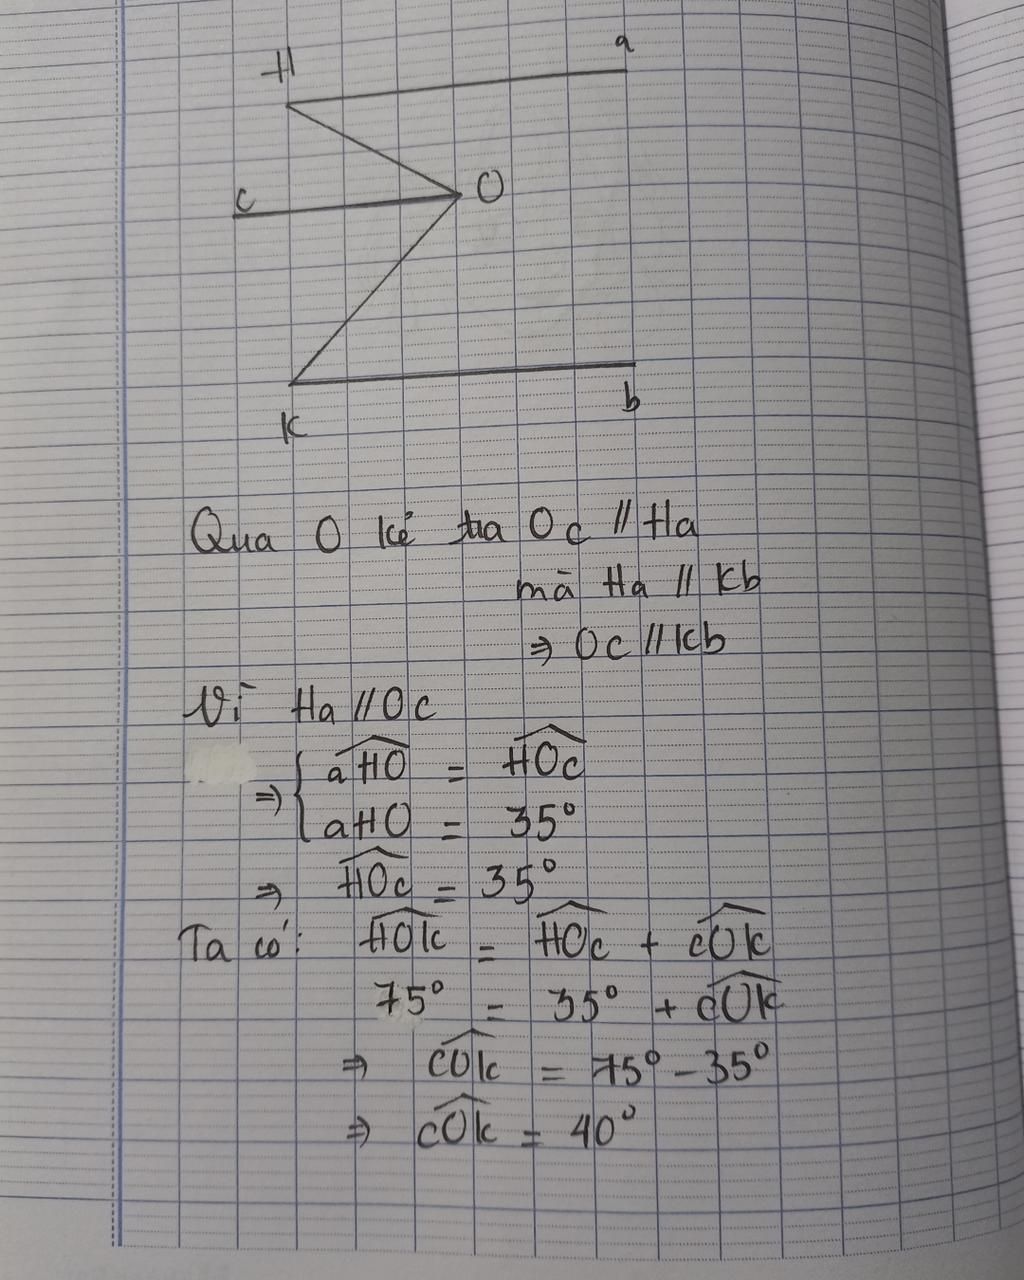 H
a
c
O
K
b
Qua O kẻ tia Oc // Ha
mà Ha // Kb
⇒ Oc // Kb
Vì Ha // Oc
⇒ { aHO = HOc
aHO = 35°
⇒ HOc = 35°
Ta có: HOK = HOc + cOK
75° = 35° + cOK
⇒ cOK = 75° - 35°
⇒ cOK = 40°